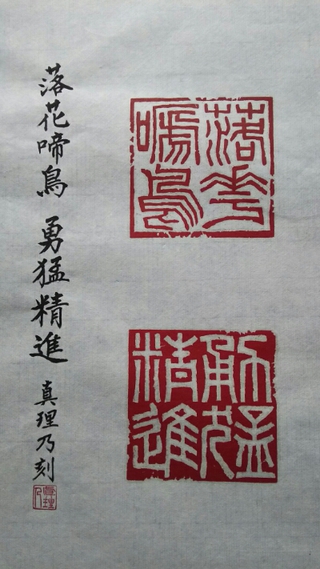 落花啼鳥
勇猛精進
落花啼鳥 勇猛精進 真理乃刻